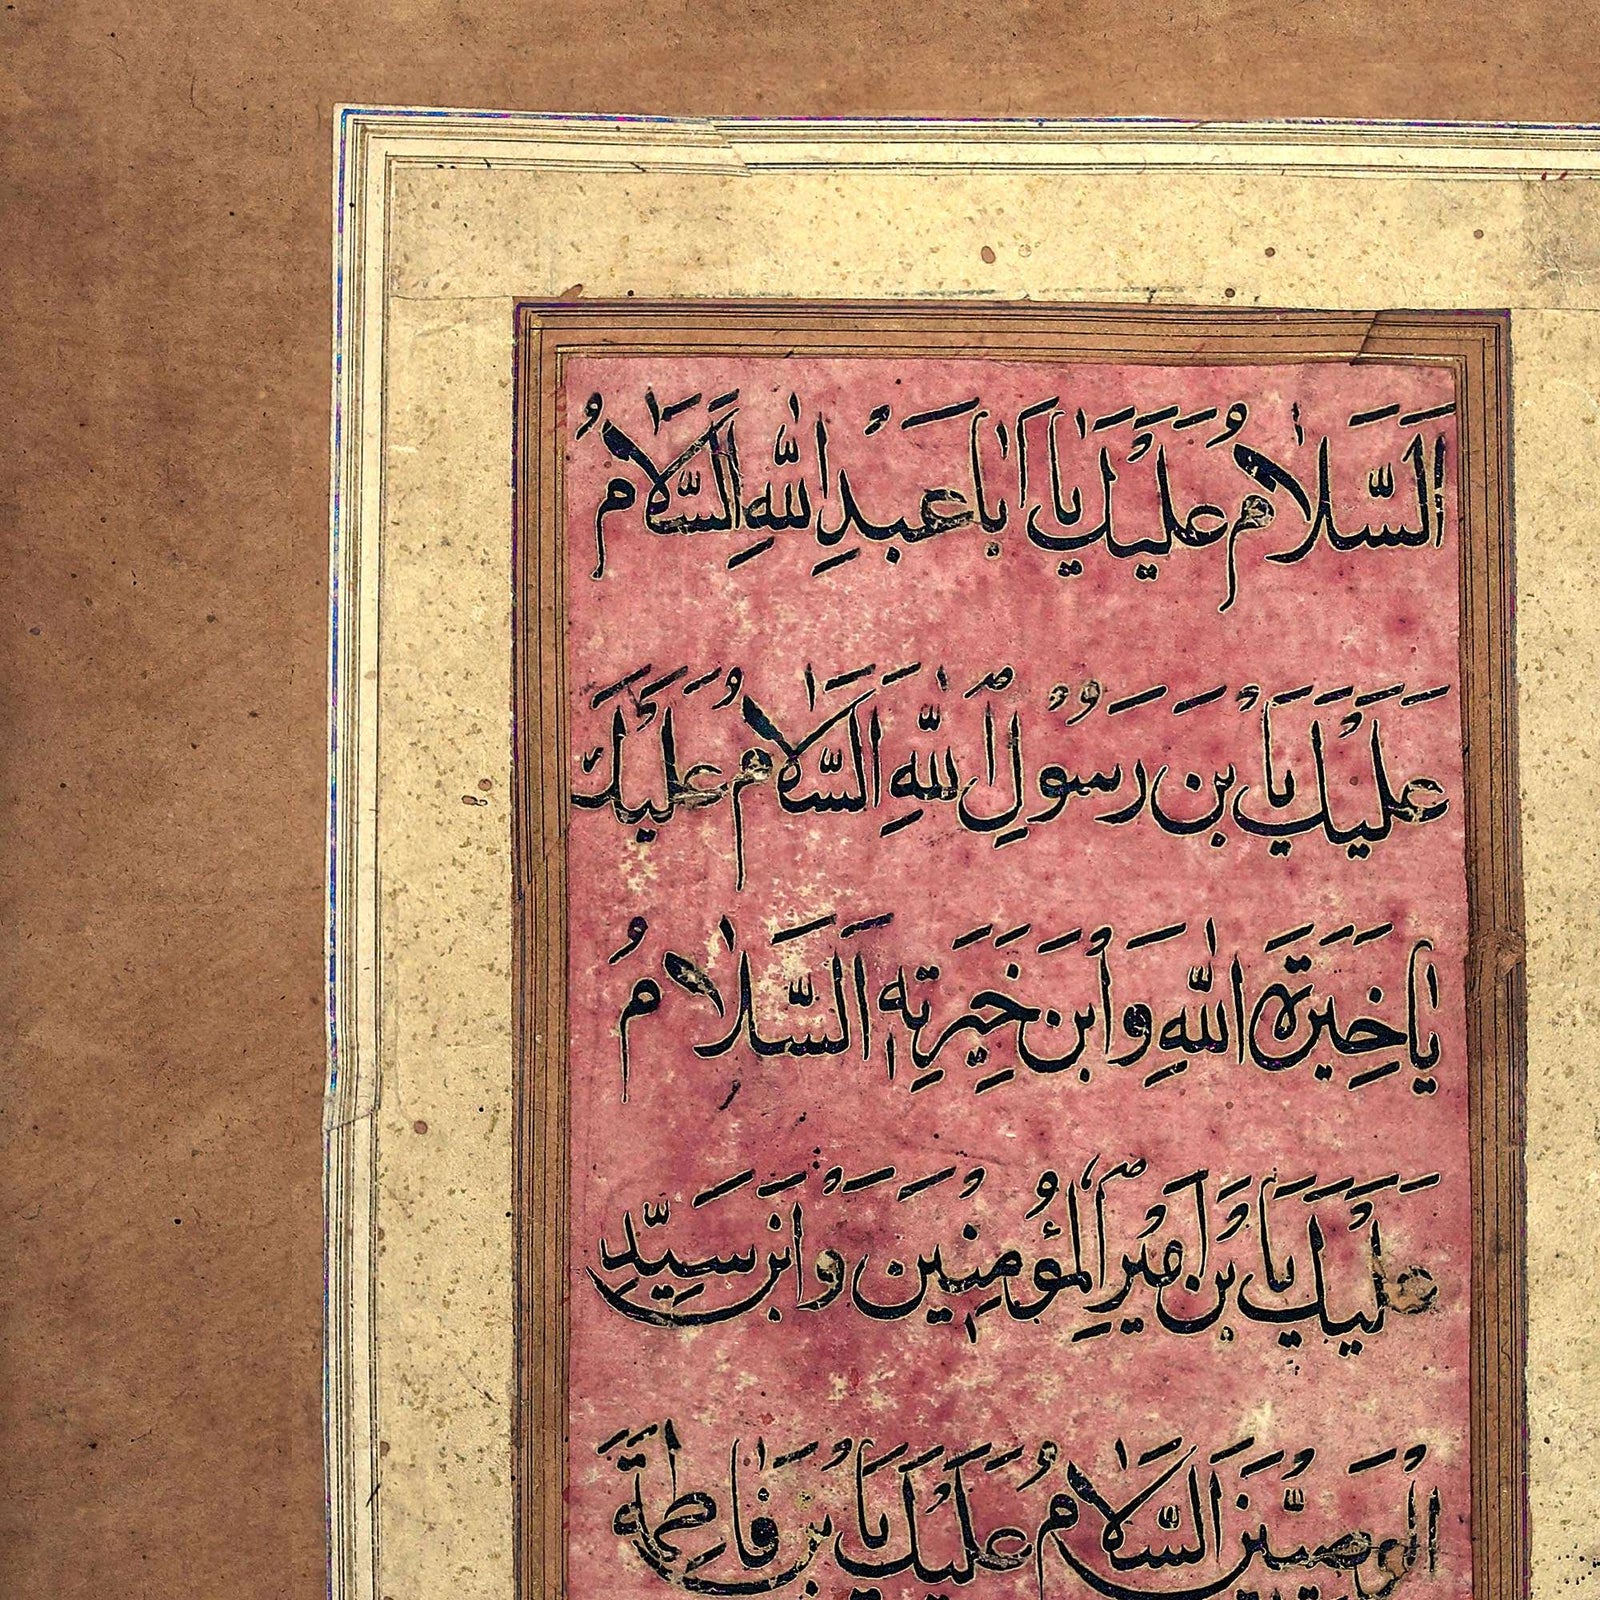 اَلسَّلَامُ عَلَيْكَ يَا اَبَا عَبْدِ اللّٰهِ اَلسَّلَامُ
عَلَيْكَ يَا بْنَ رَسُولِ اللّٰهِ اَلسَّلَامُ عَلَيْكَ
يَا خِيَرَةَ اللّٰهِ وَابْنَ خِيَرَتِهِ اَلسَّلَامُ
عَلَيْكَ يَا بْنَ اَمِيْرِ الْمُؤْمِنِيْنَ وَابْنَ سَيِّدِ
الْوَصِيِّيْنَ اَلسَّلَامُ عَلَيْكَ يَا بْنَ فَاطِمَةَ